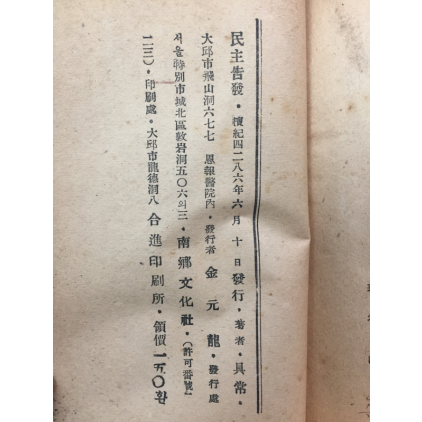 民主告發・檀紀四二八六年六月十日發行・著者・具常・
大邱市飛山洞六七七 恩報醫院內・發行者 金元龍・發行處
서울特別市城北區敦岩洞五〇六의三・南鄕文化社・(許可番號
一二三)・印刷處・大邱市龍德洞八 合進印刷所・領價一五〇환